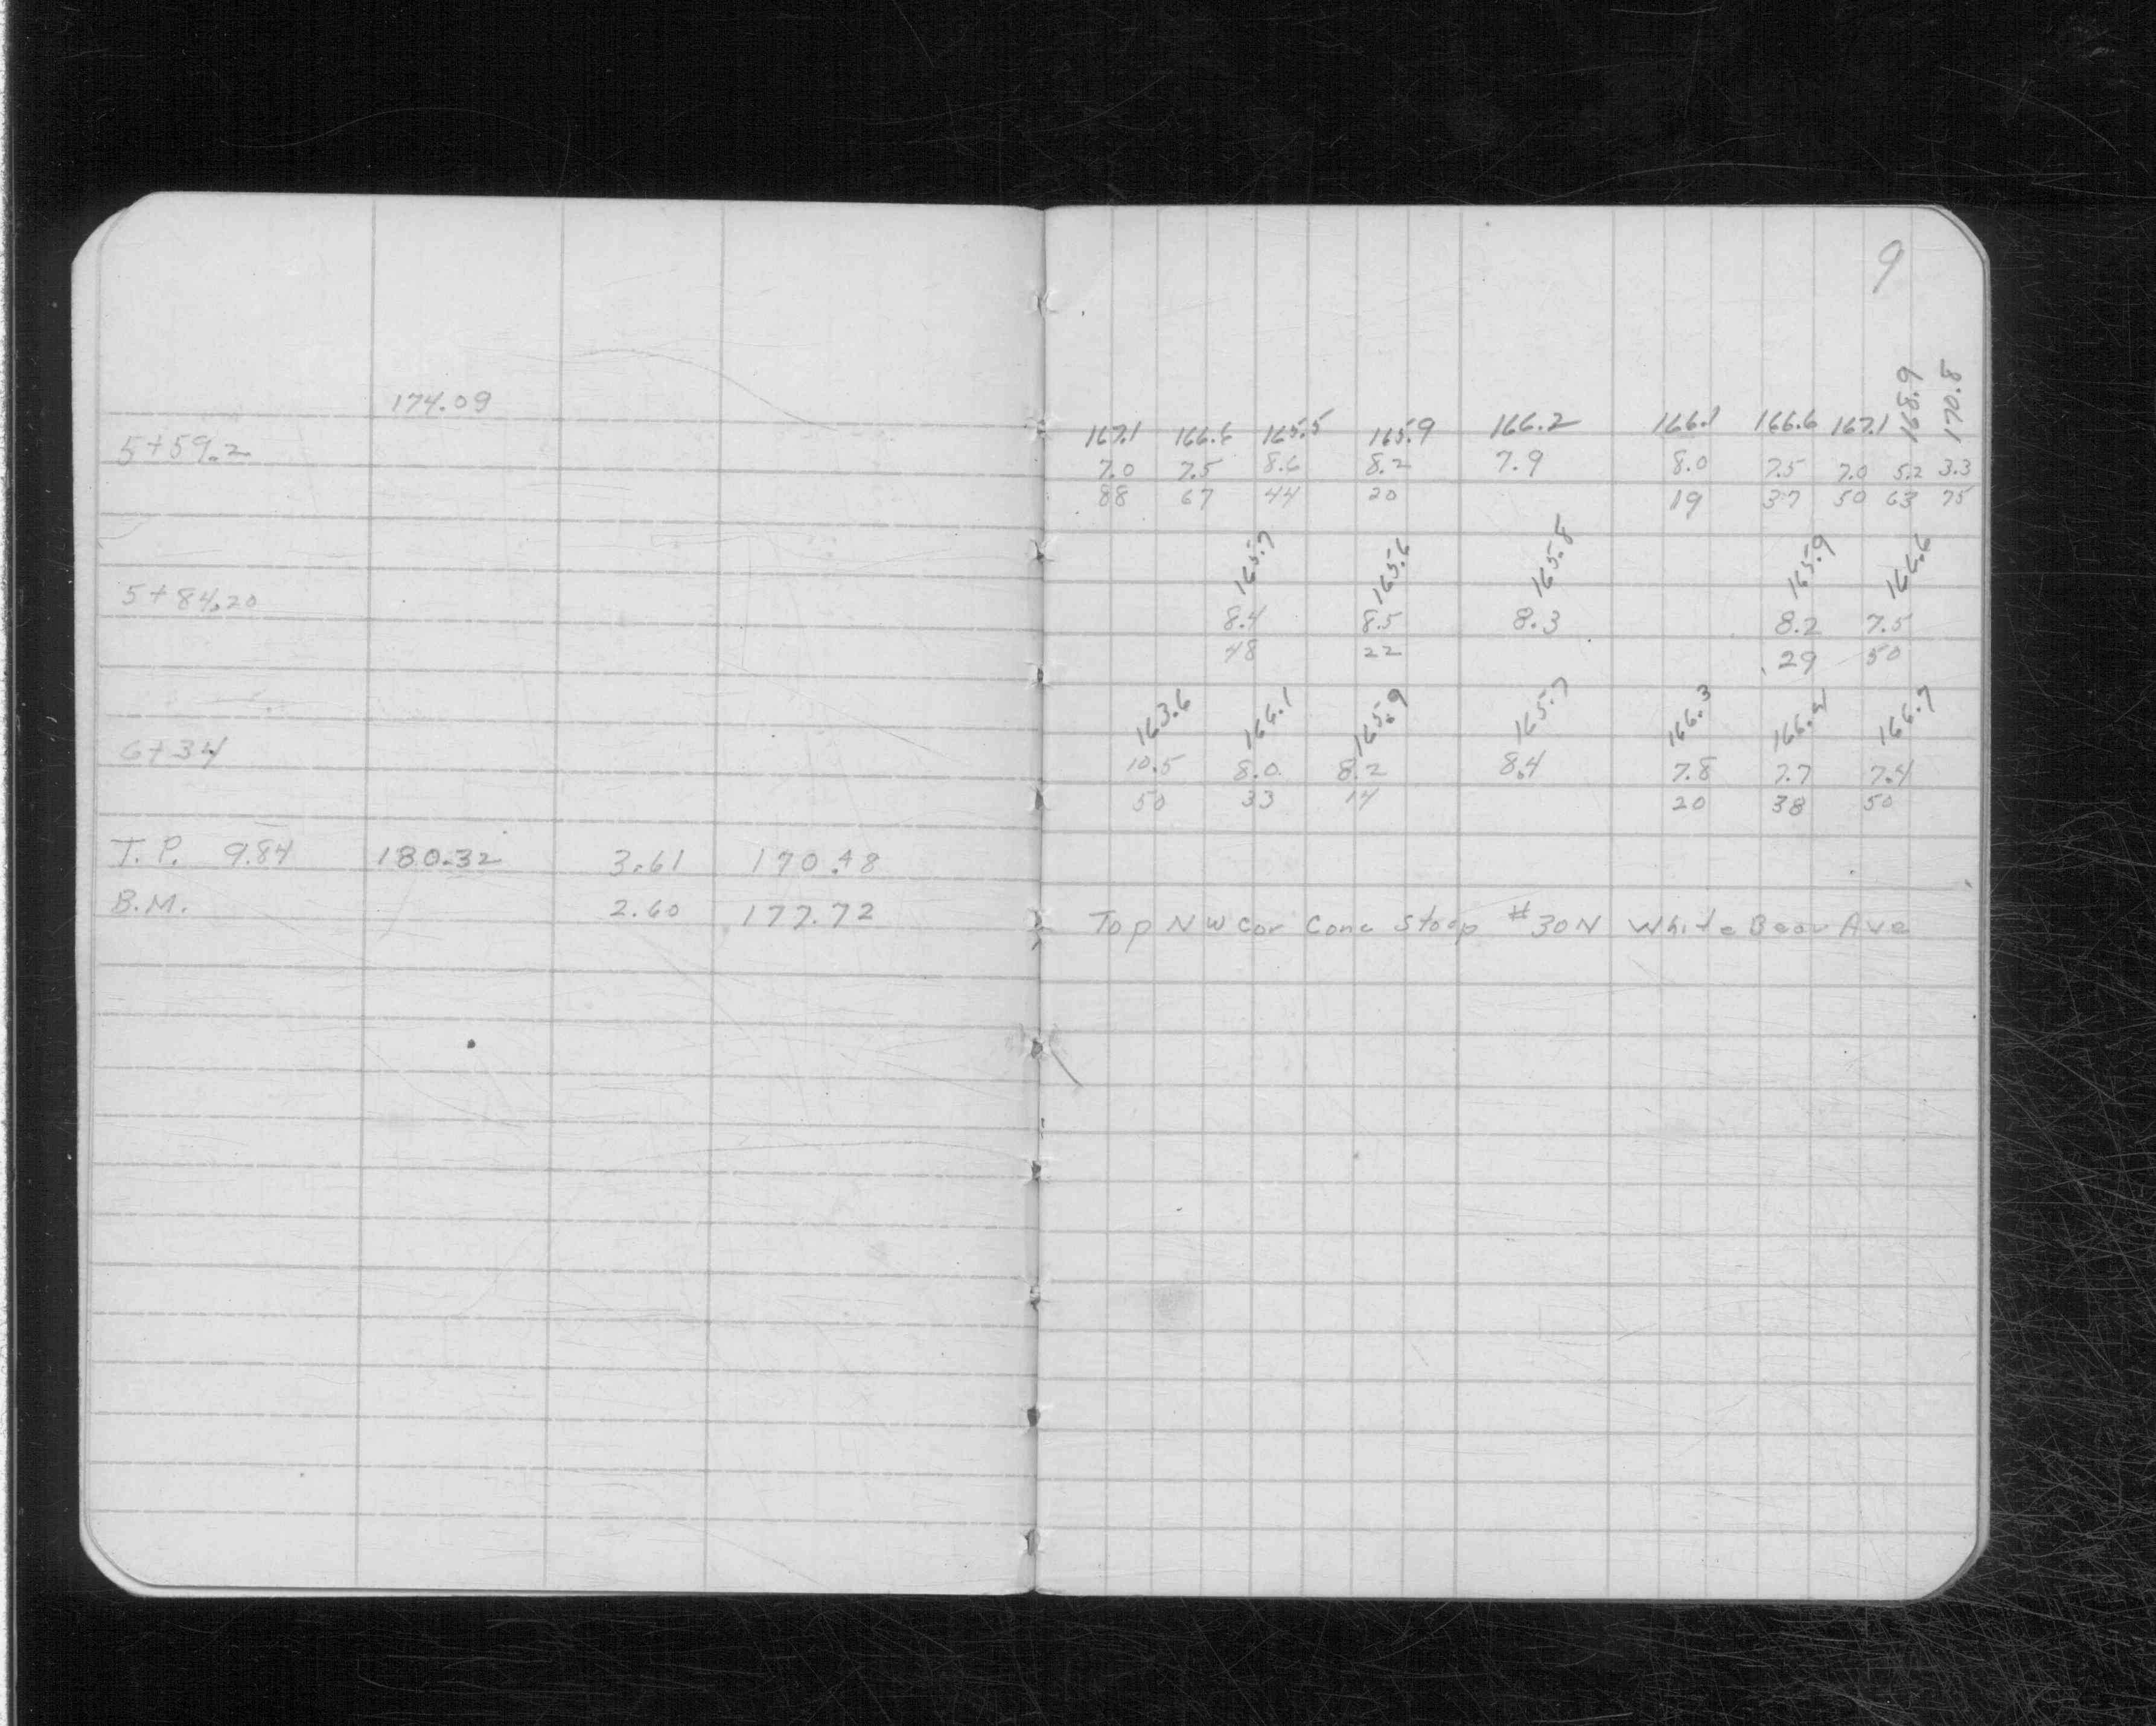 9
174.09
168.9 170.8
167.1 166.6 165.5 165.9 166.2 166.1 166.6 167.1
5+59.2 7.0 7.5 8.6 8.2 7.9 8.0 7.5 7.0 5.2 3.3
88 67 44 20 19 37 50 63 75
165.7 165.6 165.8 165.9 166.6
5+84.20 8.4 8.5 8.3 8.2 7.5
48 22 29 50
163.6 166.1 165.9 165.7 166.3 166.4 166.7
6+34 10.5 8.0 8.2 8.4 7.8 7.7 7.4
50 33 14 20 38 50
T.P. 9.84 180.32 3.61 170.48
B.M. 2.60 177.72 Top NW Cor Conc Stoop #30N White Bear Ave